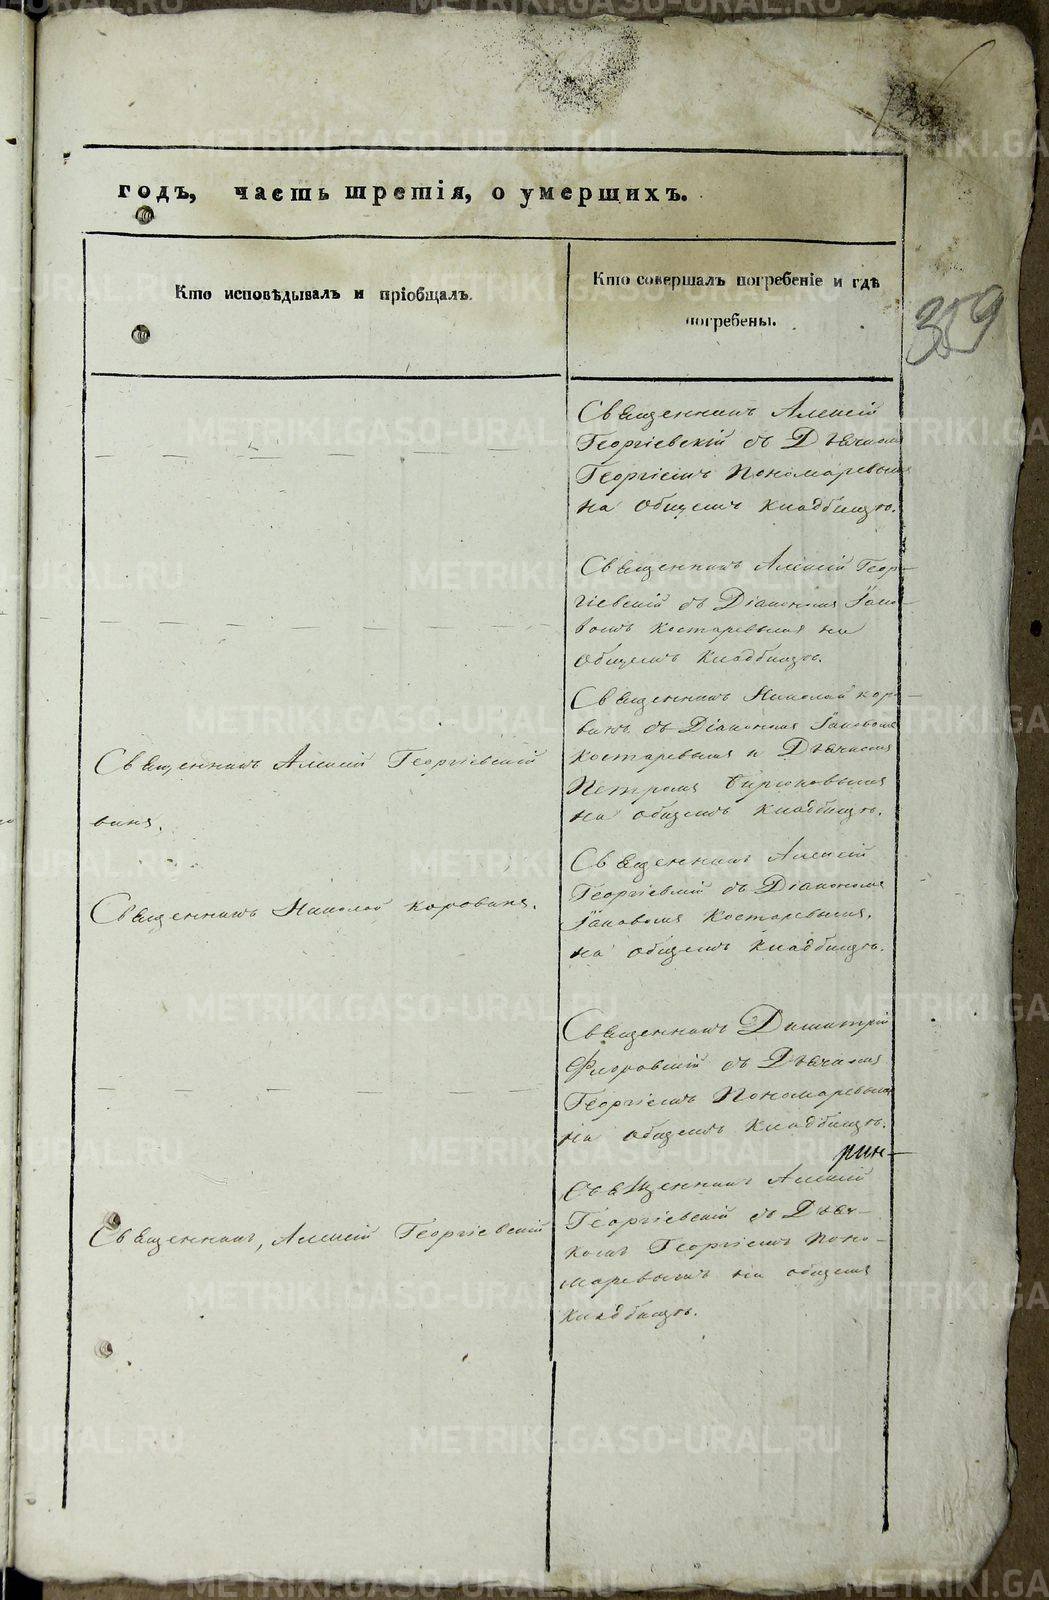 годъ, часть третія, о умершихъ.
Кто исповѣдывалъ и пріобщалъ.
Кто совершалъ погребеніе и гдѣ
погребены.
359
Священникъ Алексій
Георгіевскій съ Дьячкомъ
Георгіемъ Пономаревымъ
на общемъ кладбищѣ.
Священникъ Алексій Геор-
гіевскій съ Діакономъ Іако-
вомъ Костаревымъ на
общемъ кладбищѣ.
Священникъ Алексій Георгіевскій
винъ.
Священникъ Николай Коро-
винъ съ Діакономъ Іаковомъ
Костаревымъ и Дьячкомъ
Петромъ Бирюковымъ
на общемъ кладбищѣ.
Священникъ Николай Коровинъ.
Священникъ Алексій
Георгіевскій съ Діакономъ
Іаковомъ Костаревымъ,
на общемъ кладбищѣ.
Священникъ Димитрій
Флоровскій съ Дьячкомъ
Георгіемъ Пономаревымъ
на общемъ кладбищѣ.
рин-
Священникъ, Алексій Георгіевскій
Священникъ Алексій
Георгіевскій съ Дьяч-
комъ Георгіемъ Поно-
маревымъ на общемъ
кладбищѣ.
METRIKI.GASO-URAL.RU